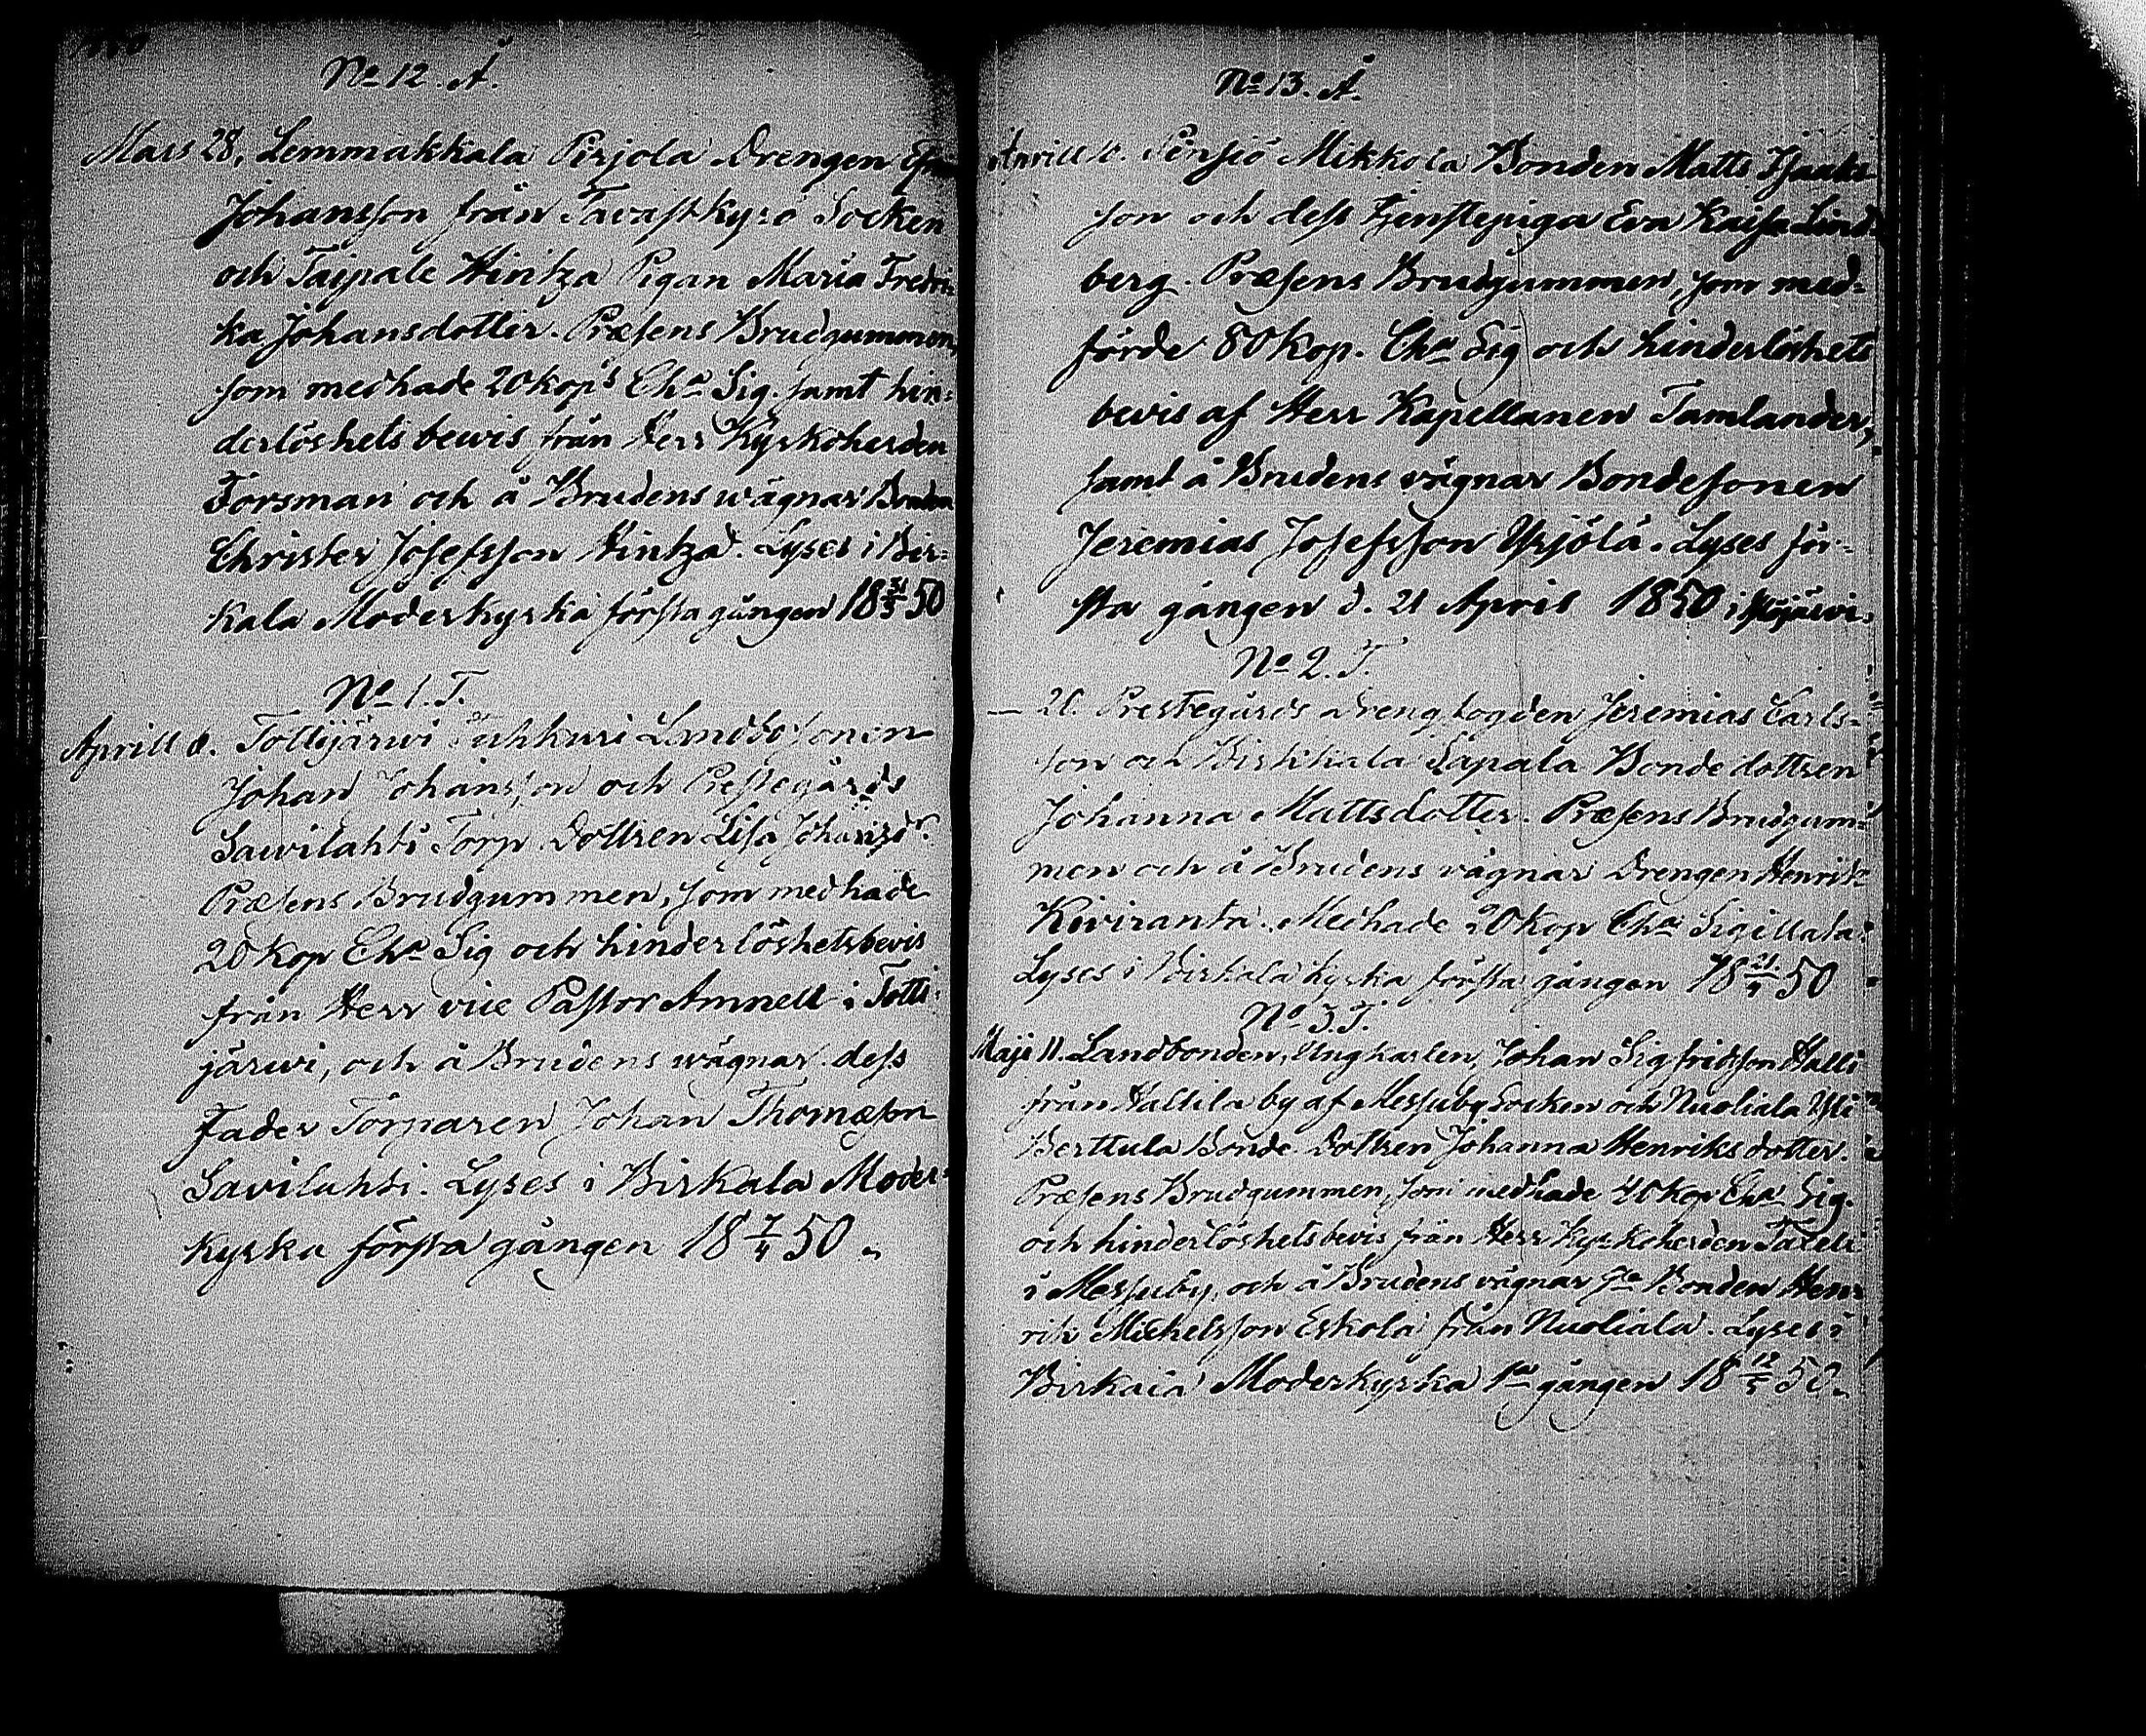 No 12. Å.
Mars 28. Lemmakkala Pirjola Drengen
Johansson från Tavastkyrö Socken
och Taipale Hintza Pigan Maria Fredri-
ka Johansdotter. Præsens Brudgummen,
som medhade 20 kop's Cha Sig. samt hin-
derlöshets bewis från Herr Kyrkoherden
Forsman och å Brudens wägnar Bonden
Christer Josefsson Hintza. Lyses i Bir-
kala Moderkyrka första gången 18 31/3 50
No 1. T.
Aprill 6. Tottijärwi Tuhkuri Landbosonen
Johan Johansson och Prestegårds
Sawilahti Torp Dottren Lisa Johansdr.
Præsens Brudgummen, som medhade
20 kop Cha Sig och hinderlöshetsbevis
från Herr vice Pastor Amnell i Totti-
järwi, och å Brudens wägnar dess
Fader Torparen Johan Thomæson
Savilahti. Lyses i Birkala Moder-
kyrka första gången 18 7/4 50.
No 13. Å.
Aprill Pensiö Mikkola Bonden Matts Isaaks-
son och dess tjenstepiga Eva Kaisa Lind-
berg. Præsens Brudgummen, som med-
förde 80 kop. Cha Sig och hinderlöshets
bevis af Herr Kapellanen Tamlander,
samt å Brudens vägnar Bondesonen
Jeremias Josefsson Yrjölä. Lyses för-
sta gången d. 21 April 1850 i Ylöjärvi.
No 2. T.
— 20. Prestegårds drengfogden Jeremias Carls-
son och Birkkala Sapala Bonde dottren
Johanna Mattsdotter. Præsens Brudgum-
men och å Brudens vägnar Drengen Henrik
Kiviranta. Medhade 20 kop Cha Sigillata.
Lyses i Birkala kyrka första gången 18 21/4 50
No 3. T.
Maji 11. Landbonden, Ungkarlen, Johan Sigfridsson Halli
från Hallila by af Messuby Socken och Nuoliala Yli
Berttula Bonde Dottren Johanna Henriksdotter.
Præsens Brudgummen, som medhade 40 kop Cha Sig.
och hinderlöshetsbevis från Herr Kyrkoherden
i Messuby, och å Brudens vägnar Bonden Hen-
rik Michelsson Eskola från Nuoliala. Lyses i
Birkala Moderkyrka 1sta gången 18 12/5 50.